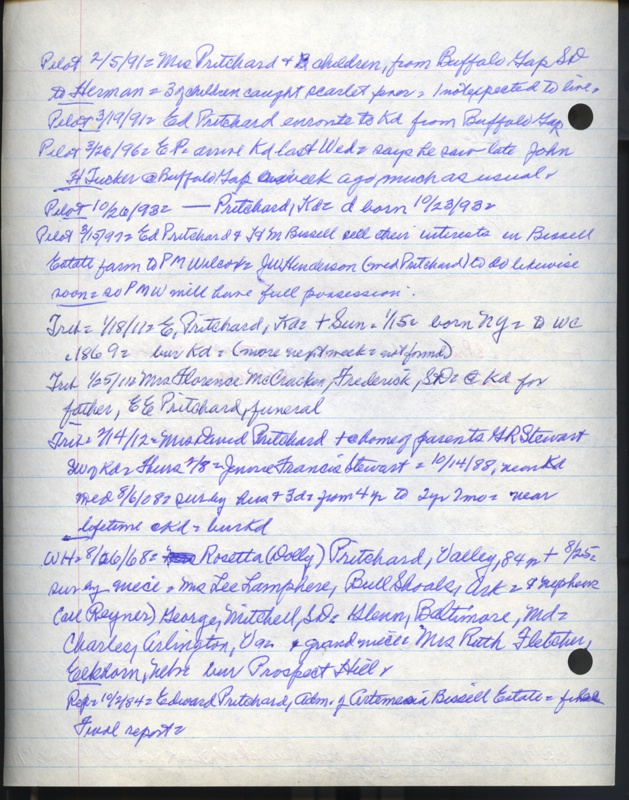 Pilot 2/5/91= Mrs Pritchard + 2 children, from Buffalo Gap SD
to Herman = 3 of children caught scarlet fever = 1 not expected to live.
Pilot 3/19/91= Ed Pritchard enroute to Kd from Buffalo Gap
Pilot 3/26/96= E P= arrive Kd last Wed= says he saw late John
H Tucker @ Buffalo Gap week ago, much as usual
Pilot 10/26/93= — Pritchard, Kd= d born 10/23/93=
Pilot 3/15/97= Ed Pritchard & H M Bissell sell their interests in Bissell
Estate farm to P M Wilcox= JW Henderson (med Pritchard) to do likewise
soon= so PMW will have "full possession".
Trib= 1/18/11= E, Pritchard, Kd= + Sun= 1/15= born NY= to WC
1869= bur Kd= (more next week= not found)
Trib 1/25/11= Mrs Florence McCracken, Frederick, SD= @ Kd for
father, E E Pritchard, funeral
Trib= 2/14/12= Mrs David Pritchard + @ home of parents GR Stewart
of Kd= Thurs 2/8= Jennie Francis Stewart = 10/14/88, near Kd
med 8/6/08= sur by hus + 3d= from 4yr to 2yr 2mo= near
lifetime @ Kd= bur Kd
WH= 8/26/68= Rosetta (Dolly) Pritchard, Valley, 84 yr + 8/25=
sur by niece= Mrs Lee Lamphere, Bull Shoals, Ark= & nephews
(all Reyner) George, Mitchell, SD= Glenn, Baltimore, Md=
Charles, Arlington, Va= & grand niece= Mrs Ruth Fletcher,
Elkhorn, Nebr bur Prospect Hill
Rep= 10/2/84= Edward Pritchard, Adm. of Artemesia Bissell Estate= files
Final report=